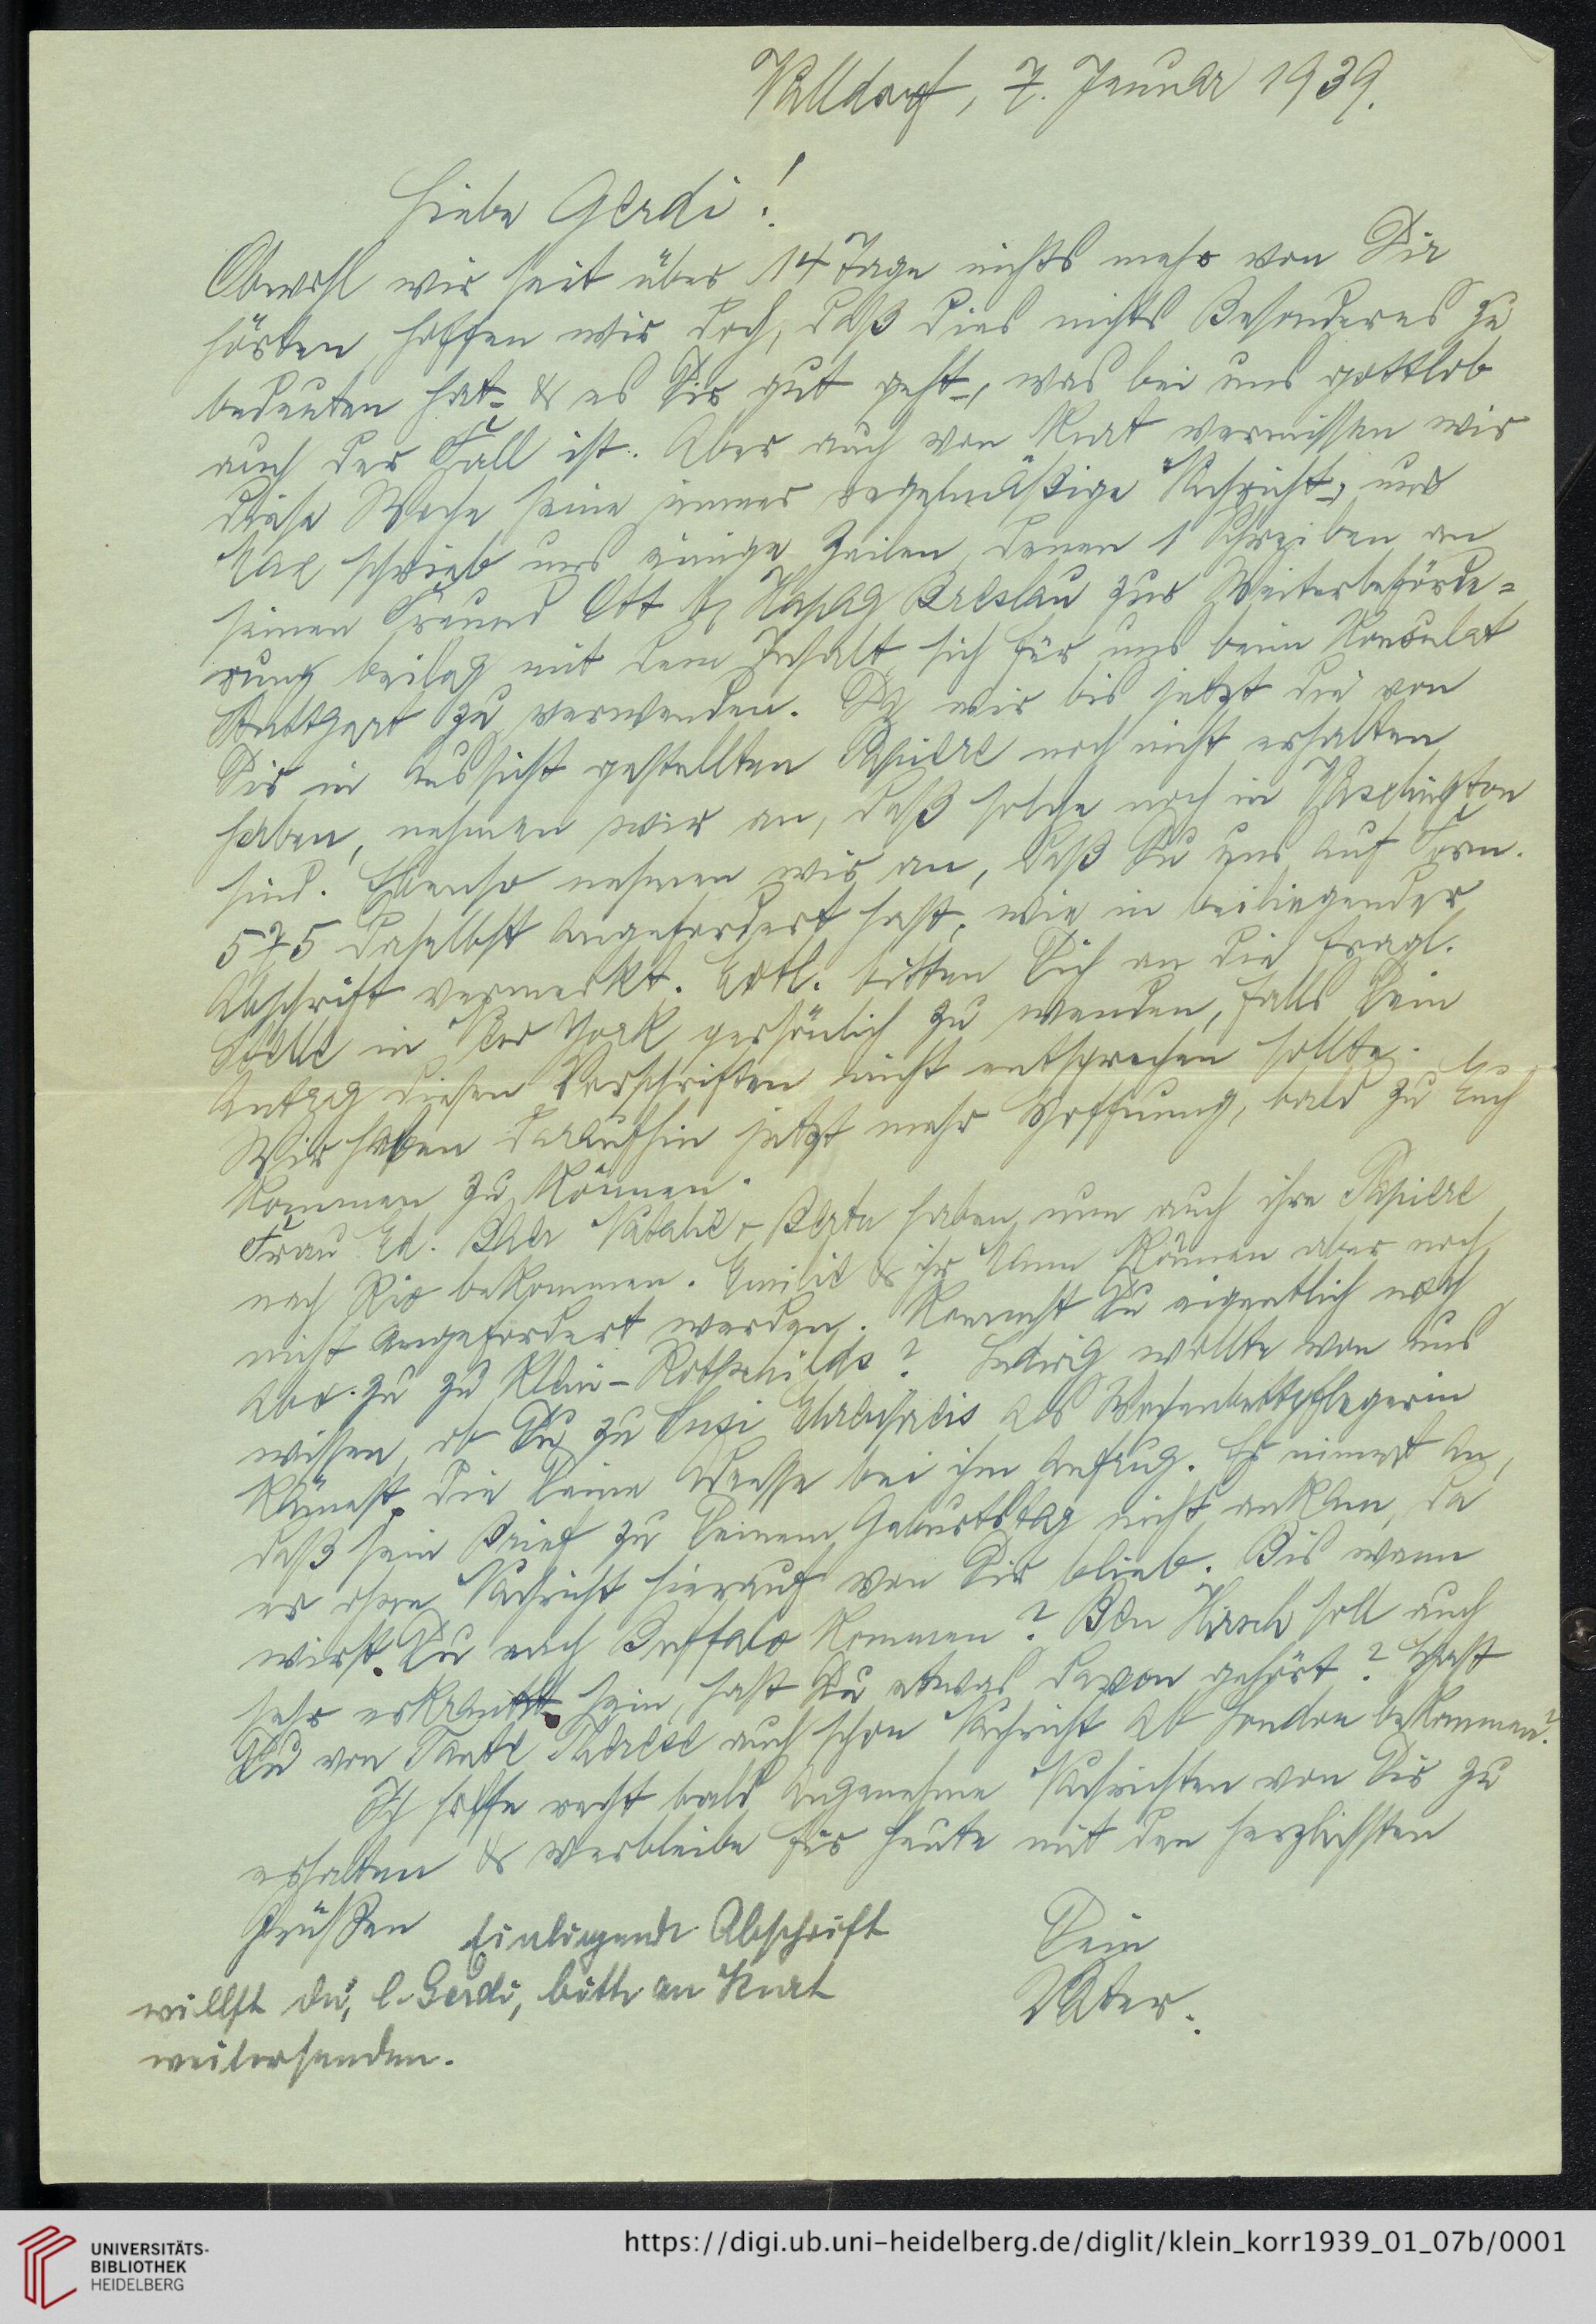 Walldorf, 7. Januar 1939.
Liebe Gerdi!
Obwohl wir seit über 14 Tage nichts mehr von Dir
hörten, hoffen wir doch, daß dies nichts Besonderes zu
bedeuten hat & es Dir gut geht, was bei uns gottlob
auch der Fall ist. Aber auch von Kurt vermissen wir
diese Woche seine immer regelmäßige Nachricht, nur
schrieb uns einige Zeilen, denen 1 Schreiben an
seinen Freund Ott Hapag Breslau zur Weiterbeförde-
rung beilag mit dem Inhalt sich für uns beim Konsulat
Stuttgart zu verwenden. Da wir bis jetzt die von
Dir in Aussicht gestellten Papiere noch nicht erhalten
haben, nehmen wir an, daß solche noch in Washington
sind. Ebenso nehmen wir an, daß Du uns auf Form.
575 daselbst angefordert hast, wie in beiliegender
Abschrift vermerkt. Evtl. bitten Dich an die fragl.
Stelle in New York persönlich zu wenden, falls Dein
Antrag diesen Vorschriften nicht entsprechen sollte.
Wir haben daraufhin jetzt mehr Hoffnung, bald zu Euch
kommen zu können.
Frau Ed. Beer Natalie & Berta haben nun auch ihre Papiere
nach Rio bekommen. Emilie & ihr Mann können aber noch
nicht angefordert werden. Kommst Du eigentlich noch
ab & zu zu Klein-Rothschilds? Ludwig wollte von uns
wissen, ob Du zu Susi als Wochenbettpflegerin
kämest, die Deine Adresse bei ihm anfrug. Er nimmt an,
daß sein Brief zu Deinem Geburtstag nicht ankam, da
er ohne Nachricht hierauf von Dir blieb. Bis wann
wirst Du nach Buffalo kommen? Ben Hirsch soll auch
sehr erkrankt sein, hast Du etwas davon gehört? Hast
Du von Tante Therese auch schon Nachricht ab London bekommen?
Ich hoffe recht bald angenehme Nachrichten von Dir zu
erhalten & verbleibe für heute mit den herzlichsten
Grüßen
Dein
Vater.
Einliegende Abschrift
willst du, l. Gerdi, bitte an Kurt
weitersenden.
UNIVERSITÄTS-
BIBLIOTHEK
HEIDELBERG
https://digi.ub.uni-heidelberg.de/diglit/klein_korr1939_01_07b/0001